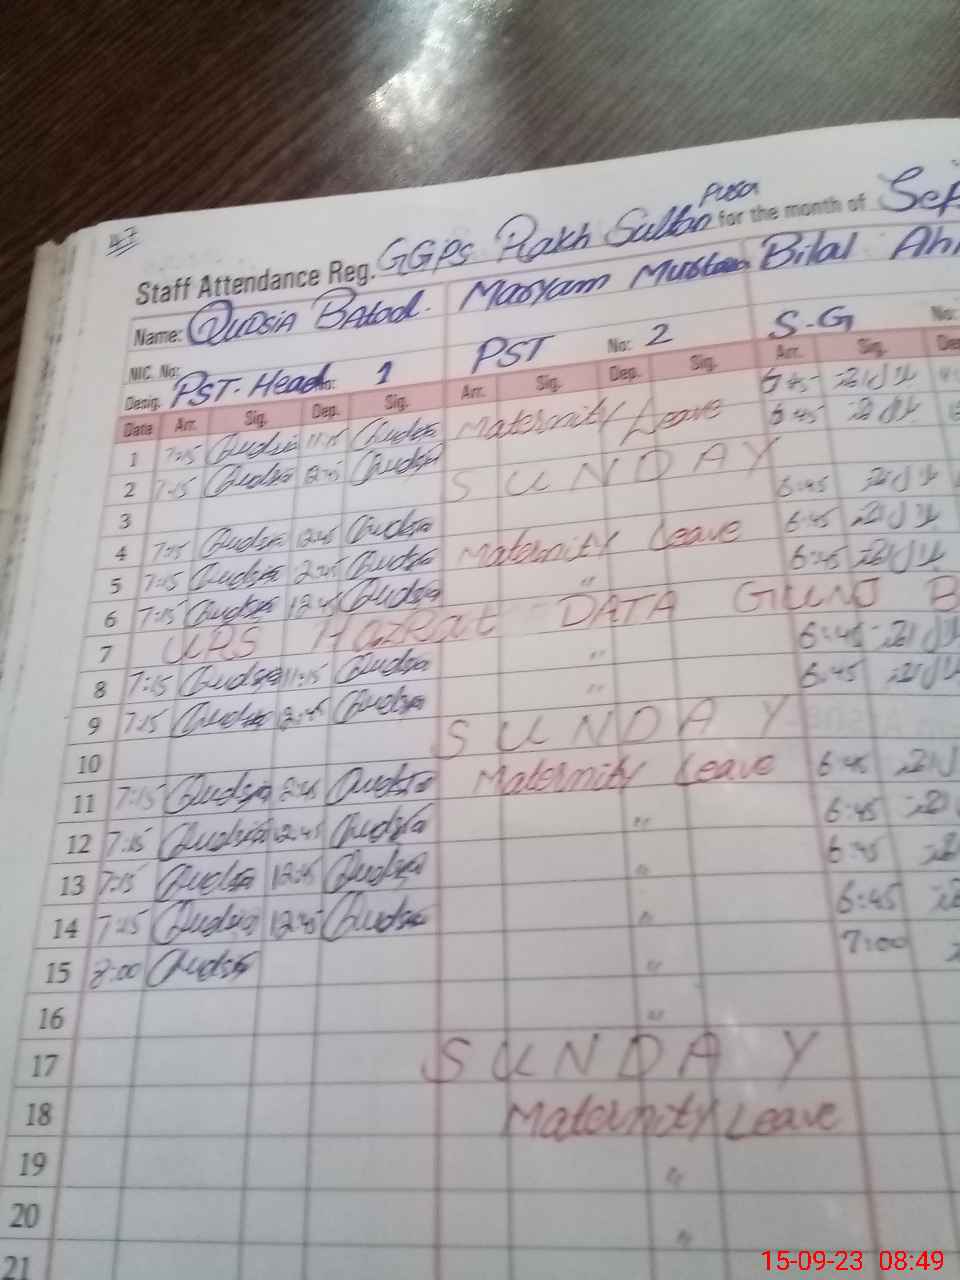 47
Staff Attendance Reg. GGPS Rakh Sultan Pusa for the month of Sep
Name: Qudsia Batool. Maryam Mustan Bilal Ah
NIC. No:
Desig. PST-Head No: 1 PST No: 2 S-G No:
Date Arr. Sig. Dep. Sig. Arr. Sig. Dep. Sig. Arr. Sig. De
1 7:15 Qudsia 11:15 Qudsia Maternity Leave 6:45
2 7:15 Qudsia 12:45 Qudsia 6:45
3 SUNDAY
4 7:15 Qudsia 12:45 Qudsia Maternity Leave 6:45
5 7:15 Qudsia 12:45 Qudsia " 6:45
6 7:15 Qudsia 12:45 Qudsia 6:45
7 URS HazRat DATA GUNJ B
8 7:15 Qudsia 11:15 Qudsia " 6:45
9 7:15 Qudsia 12:45 Qudsia " 6:45
10 SUNDAY
11 7:15 Qudsia 12:45 Qudsia Maternity Leave 6:45
12 7:15 Qudsia 12:45 Qudsia " 6:45
13 7:15 Qudsia 12:45 Qudsia " 6:45
14 7:15 Qudsia 12:45 Qudsia " 6:45
15 8:00 Qudsia " 7:00
16 "
17 SUNDAY
18 Maternity Leave
19 "
20 "
21
15-09-23 08:49